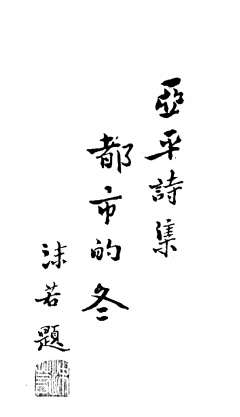 亞平詩集
都市的冬
沫若題